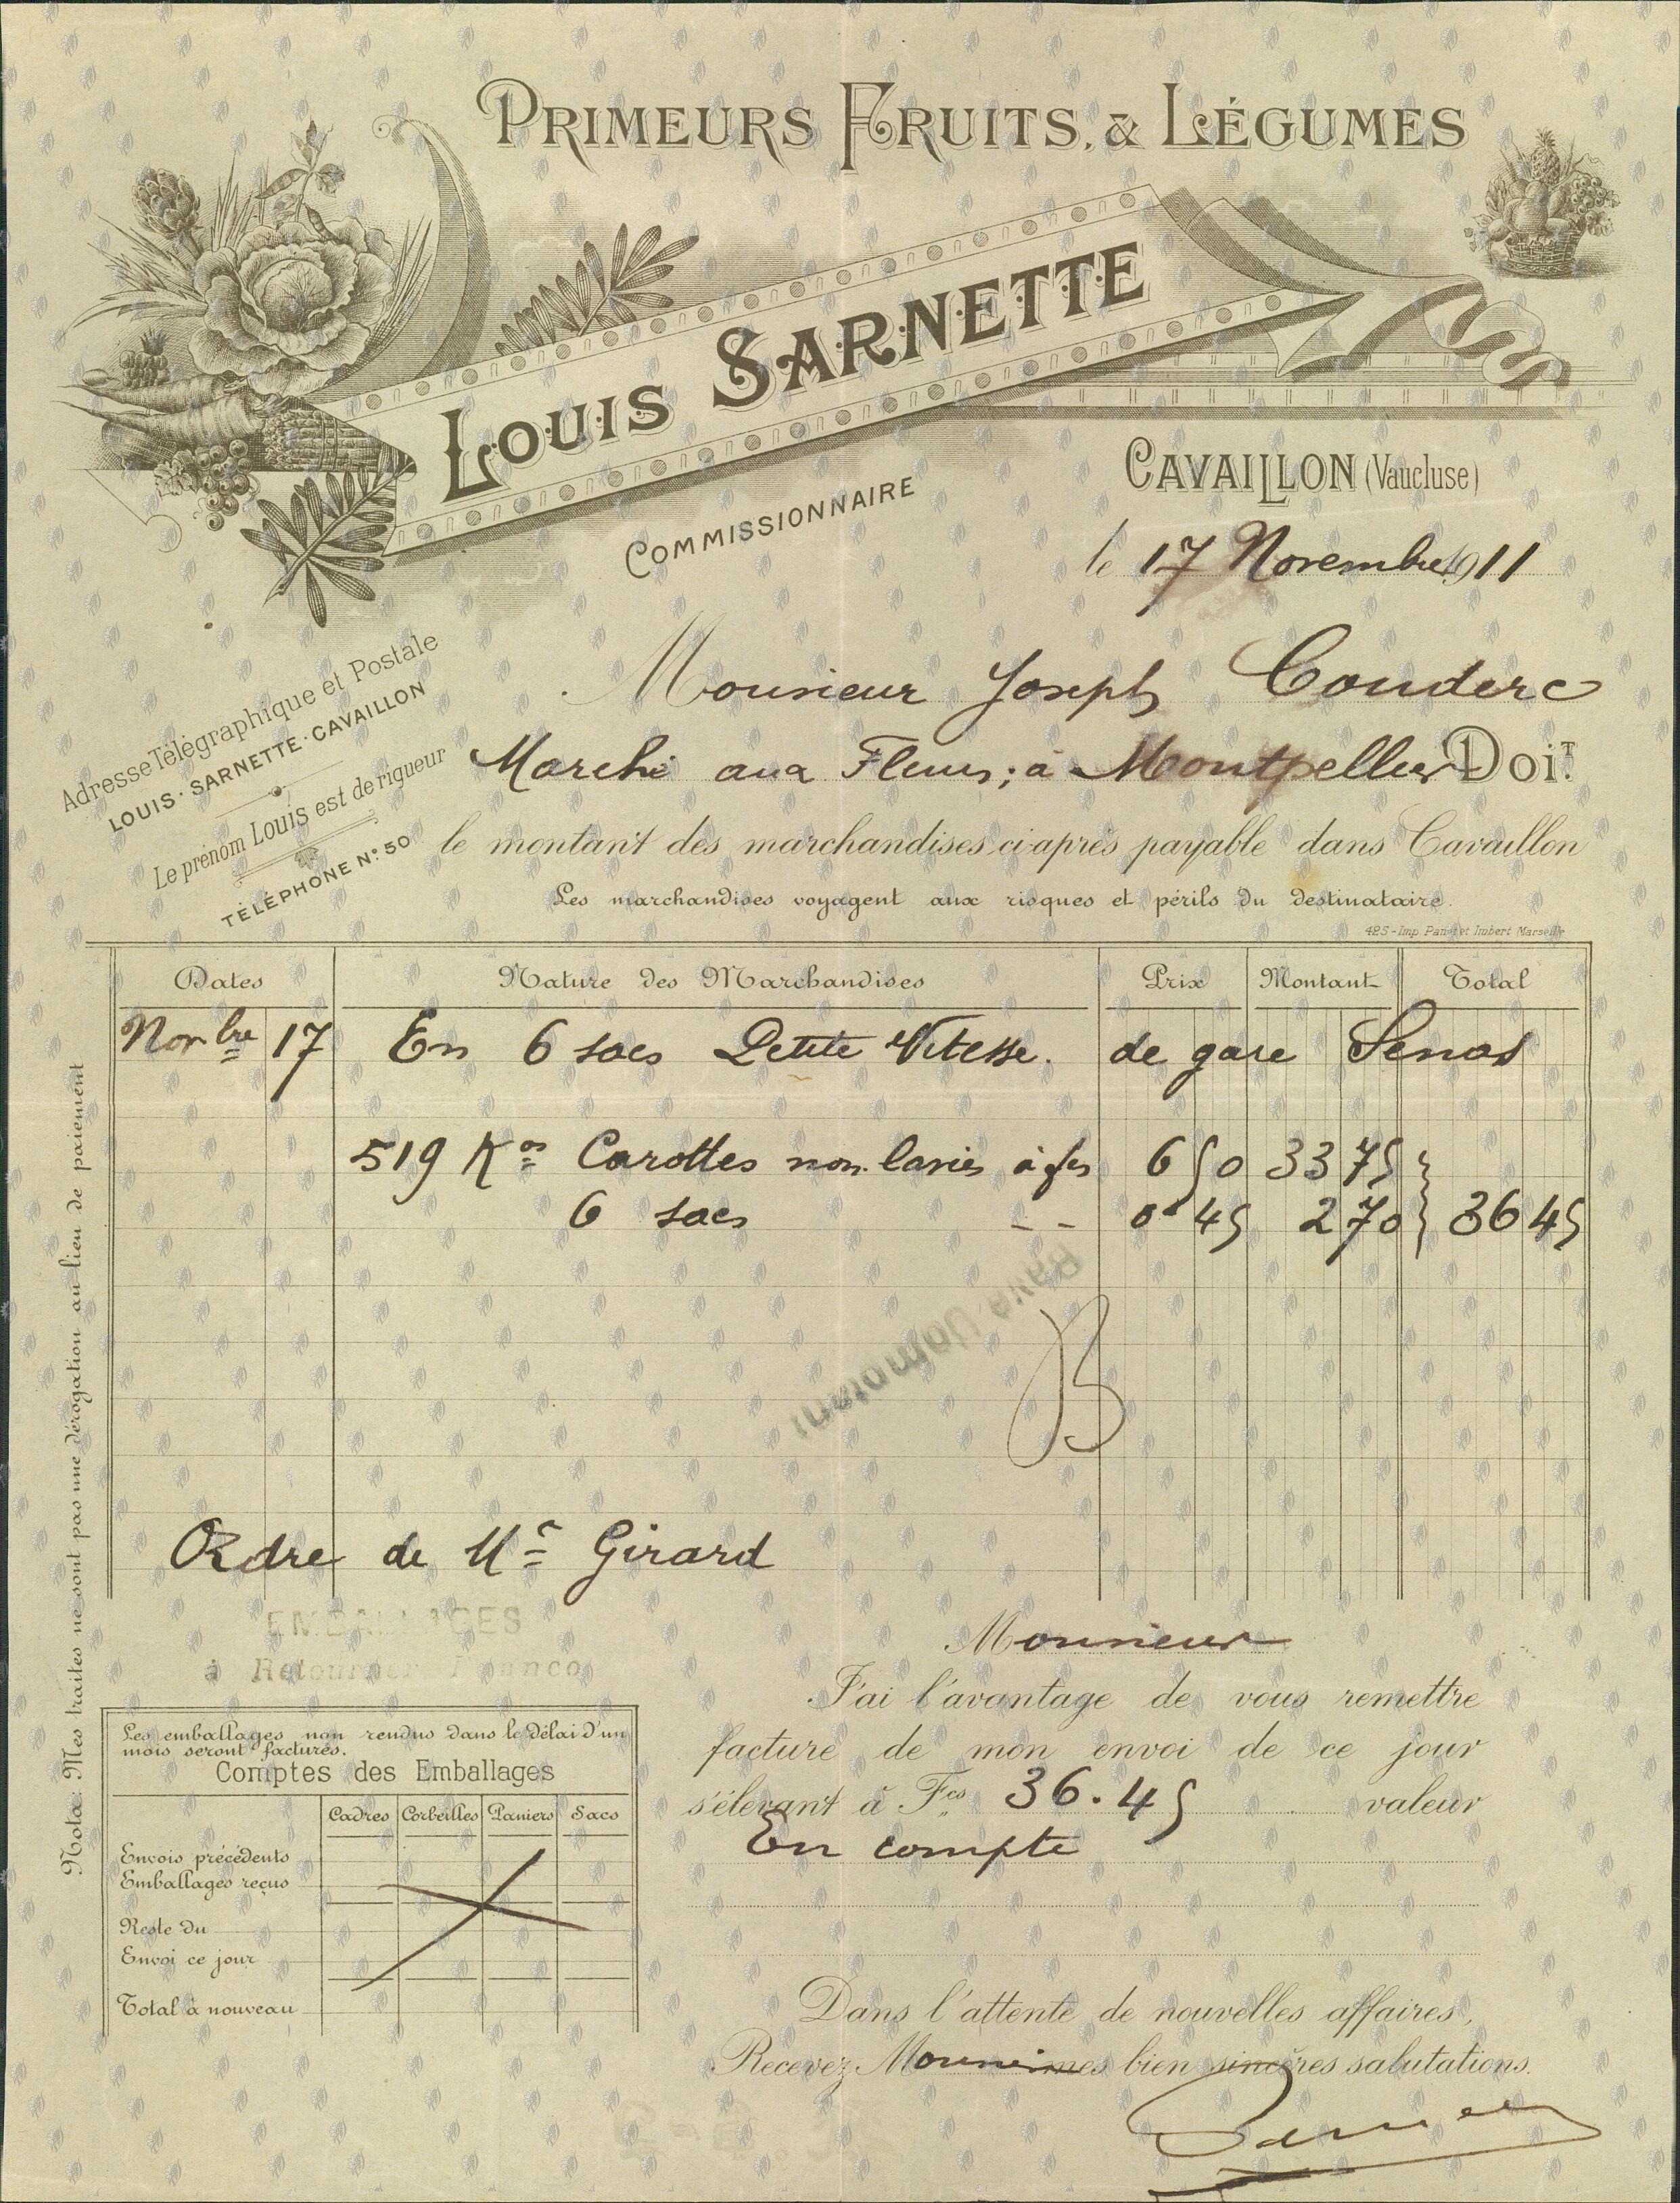 PRIMEURS FRUITS, & LÉGUMES
LOUIS SARNETTE
COMMISSIONNAIRE
CAVAILLON (Vaucluse)
le 17 Novembre 1911
Monsieur Joseph Couderc
Marché aux Fleurs; à Montpellier DOIT.
Adresse Télégraphique et Postale
LOUIS·SARNETTE·CAVAILLON
Le prénom Louis est de rigueur
TÉLÉPHONE N° 50
le montant des marchandises ci-après payable dans Cavaillon
Les marchandises voyagent aux risques et périls du destinataire.
425 - Imp. et Imbert Marseille
Dates Nature des Marchandises Prix Montant Total
Nonbre 17 En 6 sacs Petite Vitesse. de gare Senas
519 Kos Carottes non lavées à fcs 6 50 33 75
6 sacs -- 0 45 2 70 36 45
B
Ordre de Mr Girard
EMBALLAGES
à Retourner Franco
Nota: Mes traites ne sont pas une dérogation au lieu de paiement
Les emballages non rendus dans le délai d'un
mois seront facturés.
Comptes des Emballages
Cadres Corbeilles Paniers Sacs
Envois précédents
Emballages reçus
Reste du
Envoi ce jour
Total à nouveau
Monsieur
J'ai l'avantage de vous remettre
facture de mon envoi de ce jour
s'élevant à Fcs 36.45 valeur
En compte
Dans l'attente de nouvelles affaires,
Recevez Monsieur mes bien sincères salutations.